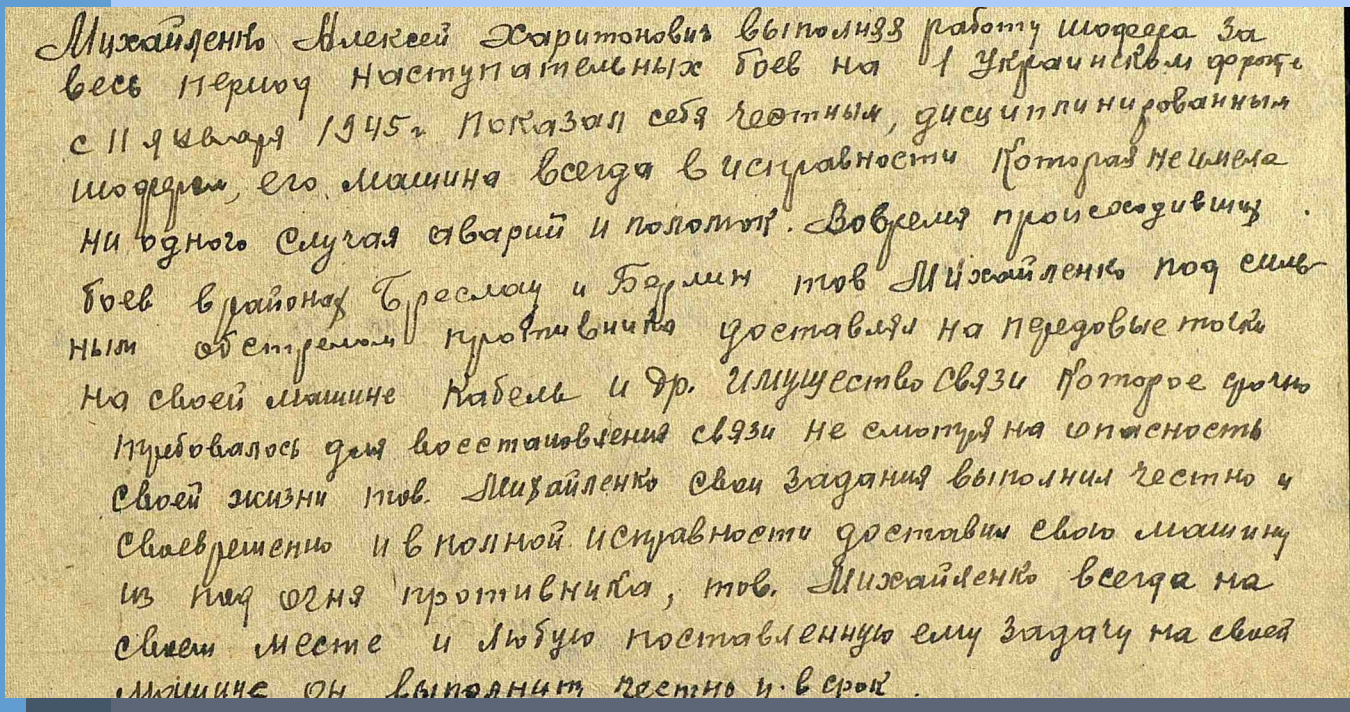 Михайленко Алексей Харитонович выполняя работу шофера за
весь период наступательных боев на 1 Украинском фронте
с 11 января 1945 г. показал себя честным, дисциплинированным
шофером, его машина всегда в исправности которая не имела
ни одного случая аварий и поломок. Вовремя происходивших
боев в районах Бреслау и Берлин тов Михайленко под силь-
ным обстрелом противника доставлял на передовые точки
на своей машине кабель и др. имущество связи которое срочно
требовалось для восстановления связи не смотря на опасность
своей жизни тов. Михайленко свои задания выполнил честно и
своевременно и в полной исправности доставил свою машину
из под огня противника, тов. Михайленко всегда на
своем месте и любую поставленную ему задачу на своей
машине он выполнит честно и в срок.